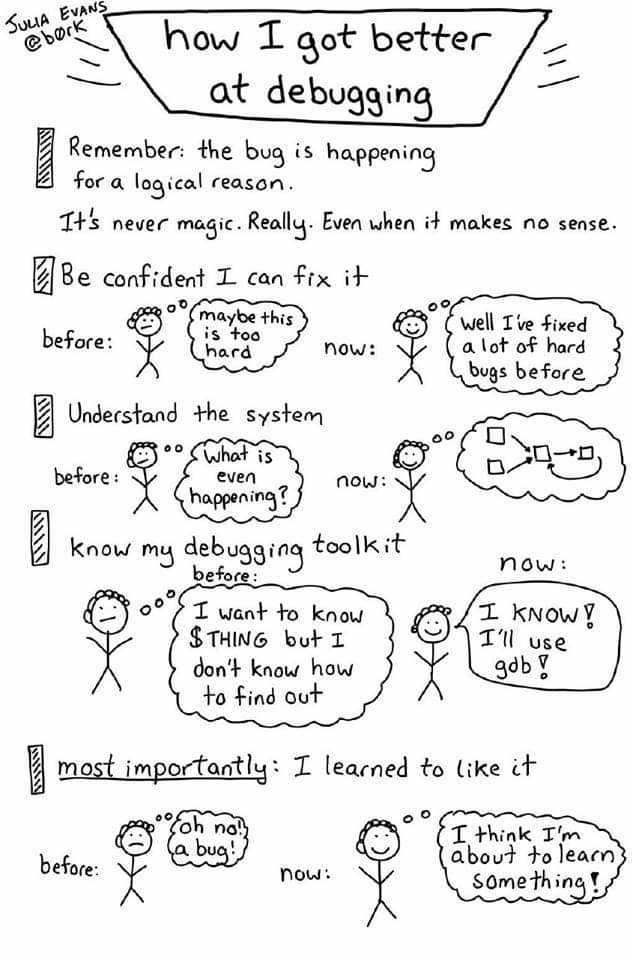 JULIA EVANS
@børk
how I got better
at debugging
Remember: the bug is happening
for a logical reason.
It's never magic. Really. Even when it makes no sense.
Be confident I can fix it
before:
maybe this
is too
hard
now:
well I've fixed
a lot of hard
bugs before
Understand the system
before:
What is
even
happening?
now:
know my debugging toolkit
before:
I want to know
$THING but I
don't know how
to find out
now:
I KNOW!
I'll use
gdb!
most importantly: I learned to like it
before:
oh no!
a bug!
now:
I think I'm
about to learn
something!